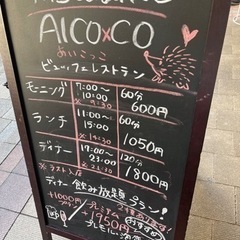 AICO×CO
あいこっこ
ビュッフェレストラン
モーニング 7:00〜10:00 60分 600円
※9:30
ランチ 11:00〜15:00 60分 1050円
※14:30
ディナー 17:00〜23:00 120分 1800円
※ラスト入店 ※22:30
ディナー 飲み放題プラン!
+1000円 プレミアム
+1750円